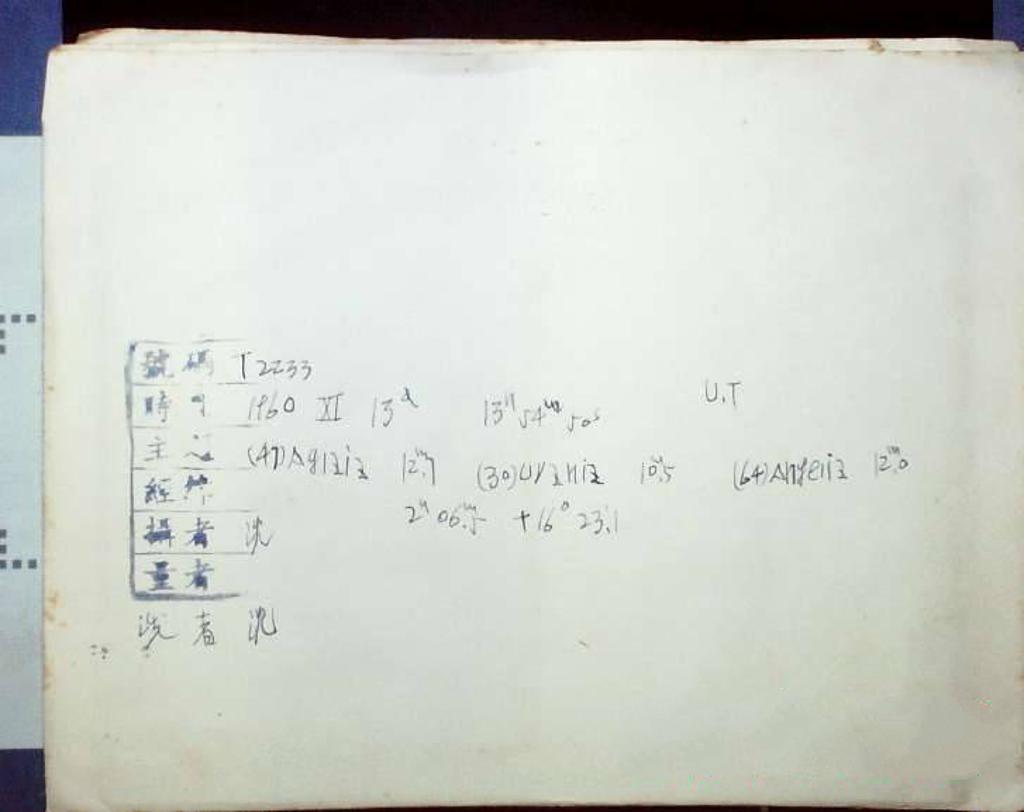 號碼 T2233
時 1960 XI 13ᵈ 13ʰ 54ᵐ 50ˢ U.T
主 (47) Aglaia 12ᵐ.7 (30) Urania 10ᵐ.5 (64) Angelina 12ᵐ.0
經緯 2ʰ 06ᵐ.5 +16° 23'.1
攝者 沈
量者
洗者 沈